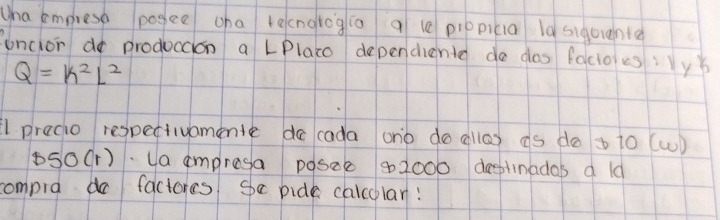 Una empresa posee una tecnología q le propicia la siguiente
función de producción a LPlazo dependiente de dos factores: L y K
Q = K²L²
El precio respectivamente de cada uno de ellos es de $10 (w)
$50(r). La empresa posee $2000 destinados a la
compra de factores. Se pide calcular: